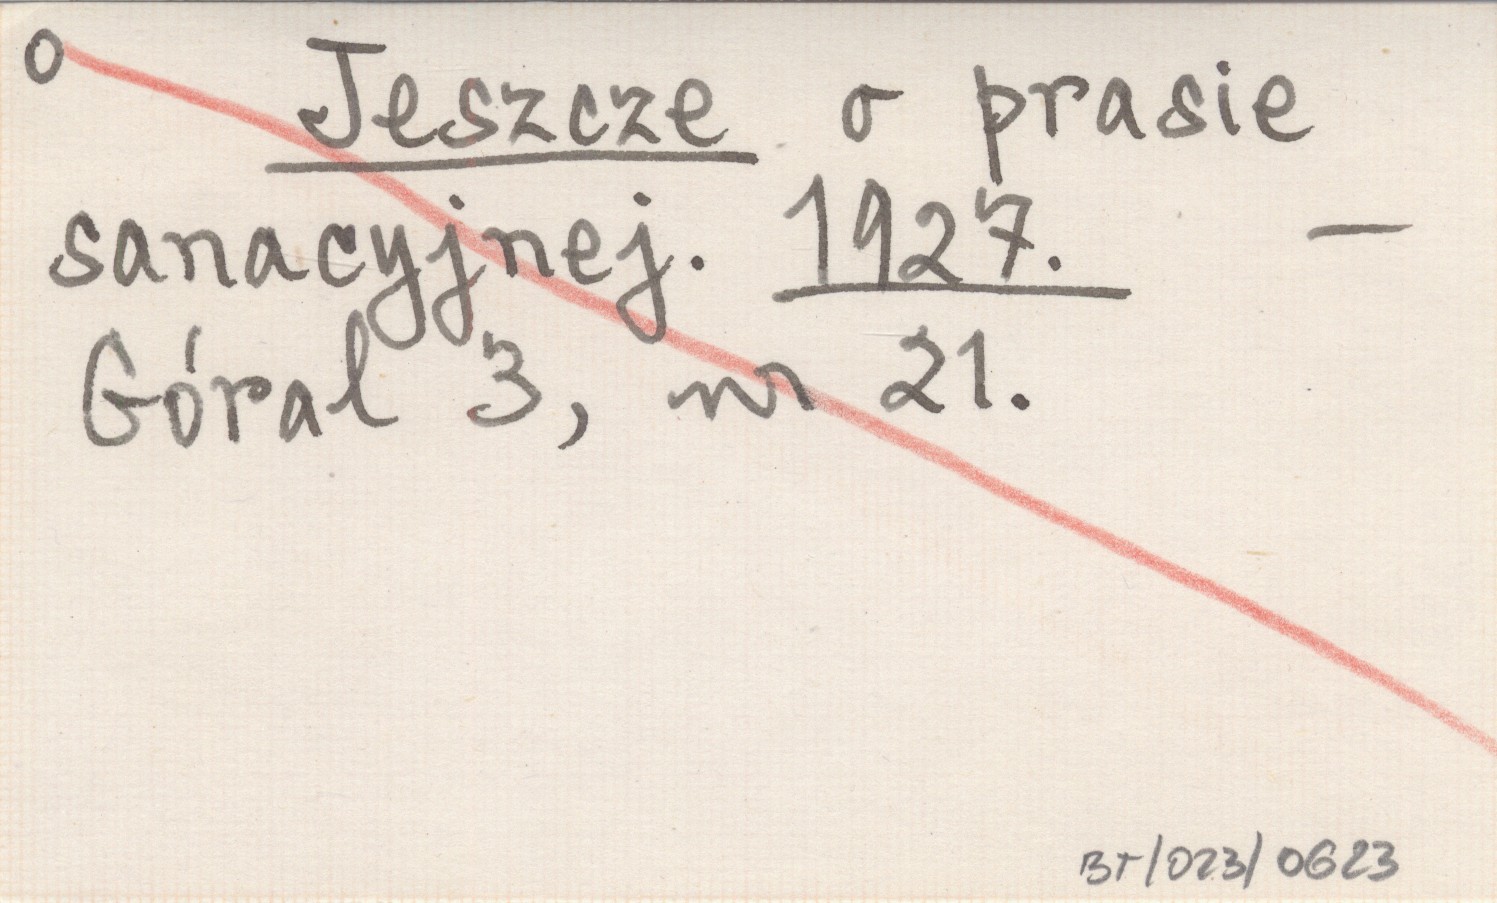 o Jeszcze o prasie
sanacyjnej. 1927. —
Góral 3, nr 21.
BT/023/0623